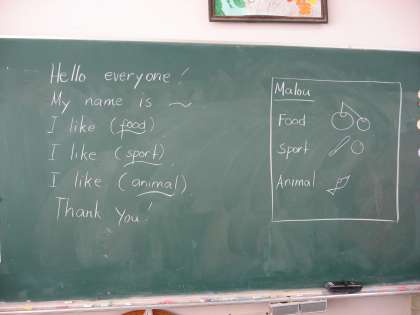 Hello everyone!
My name is ~
I like (food)
I like (sport)
I like (animal)
Thank you!
Malou
Food
Sport
Animal